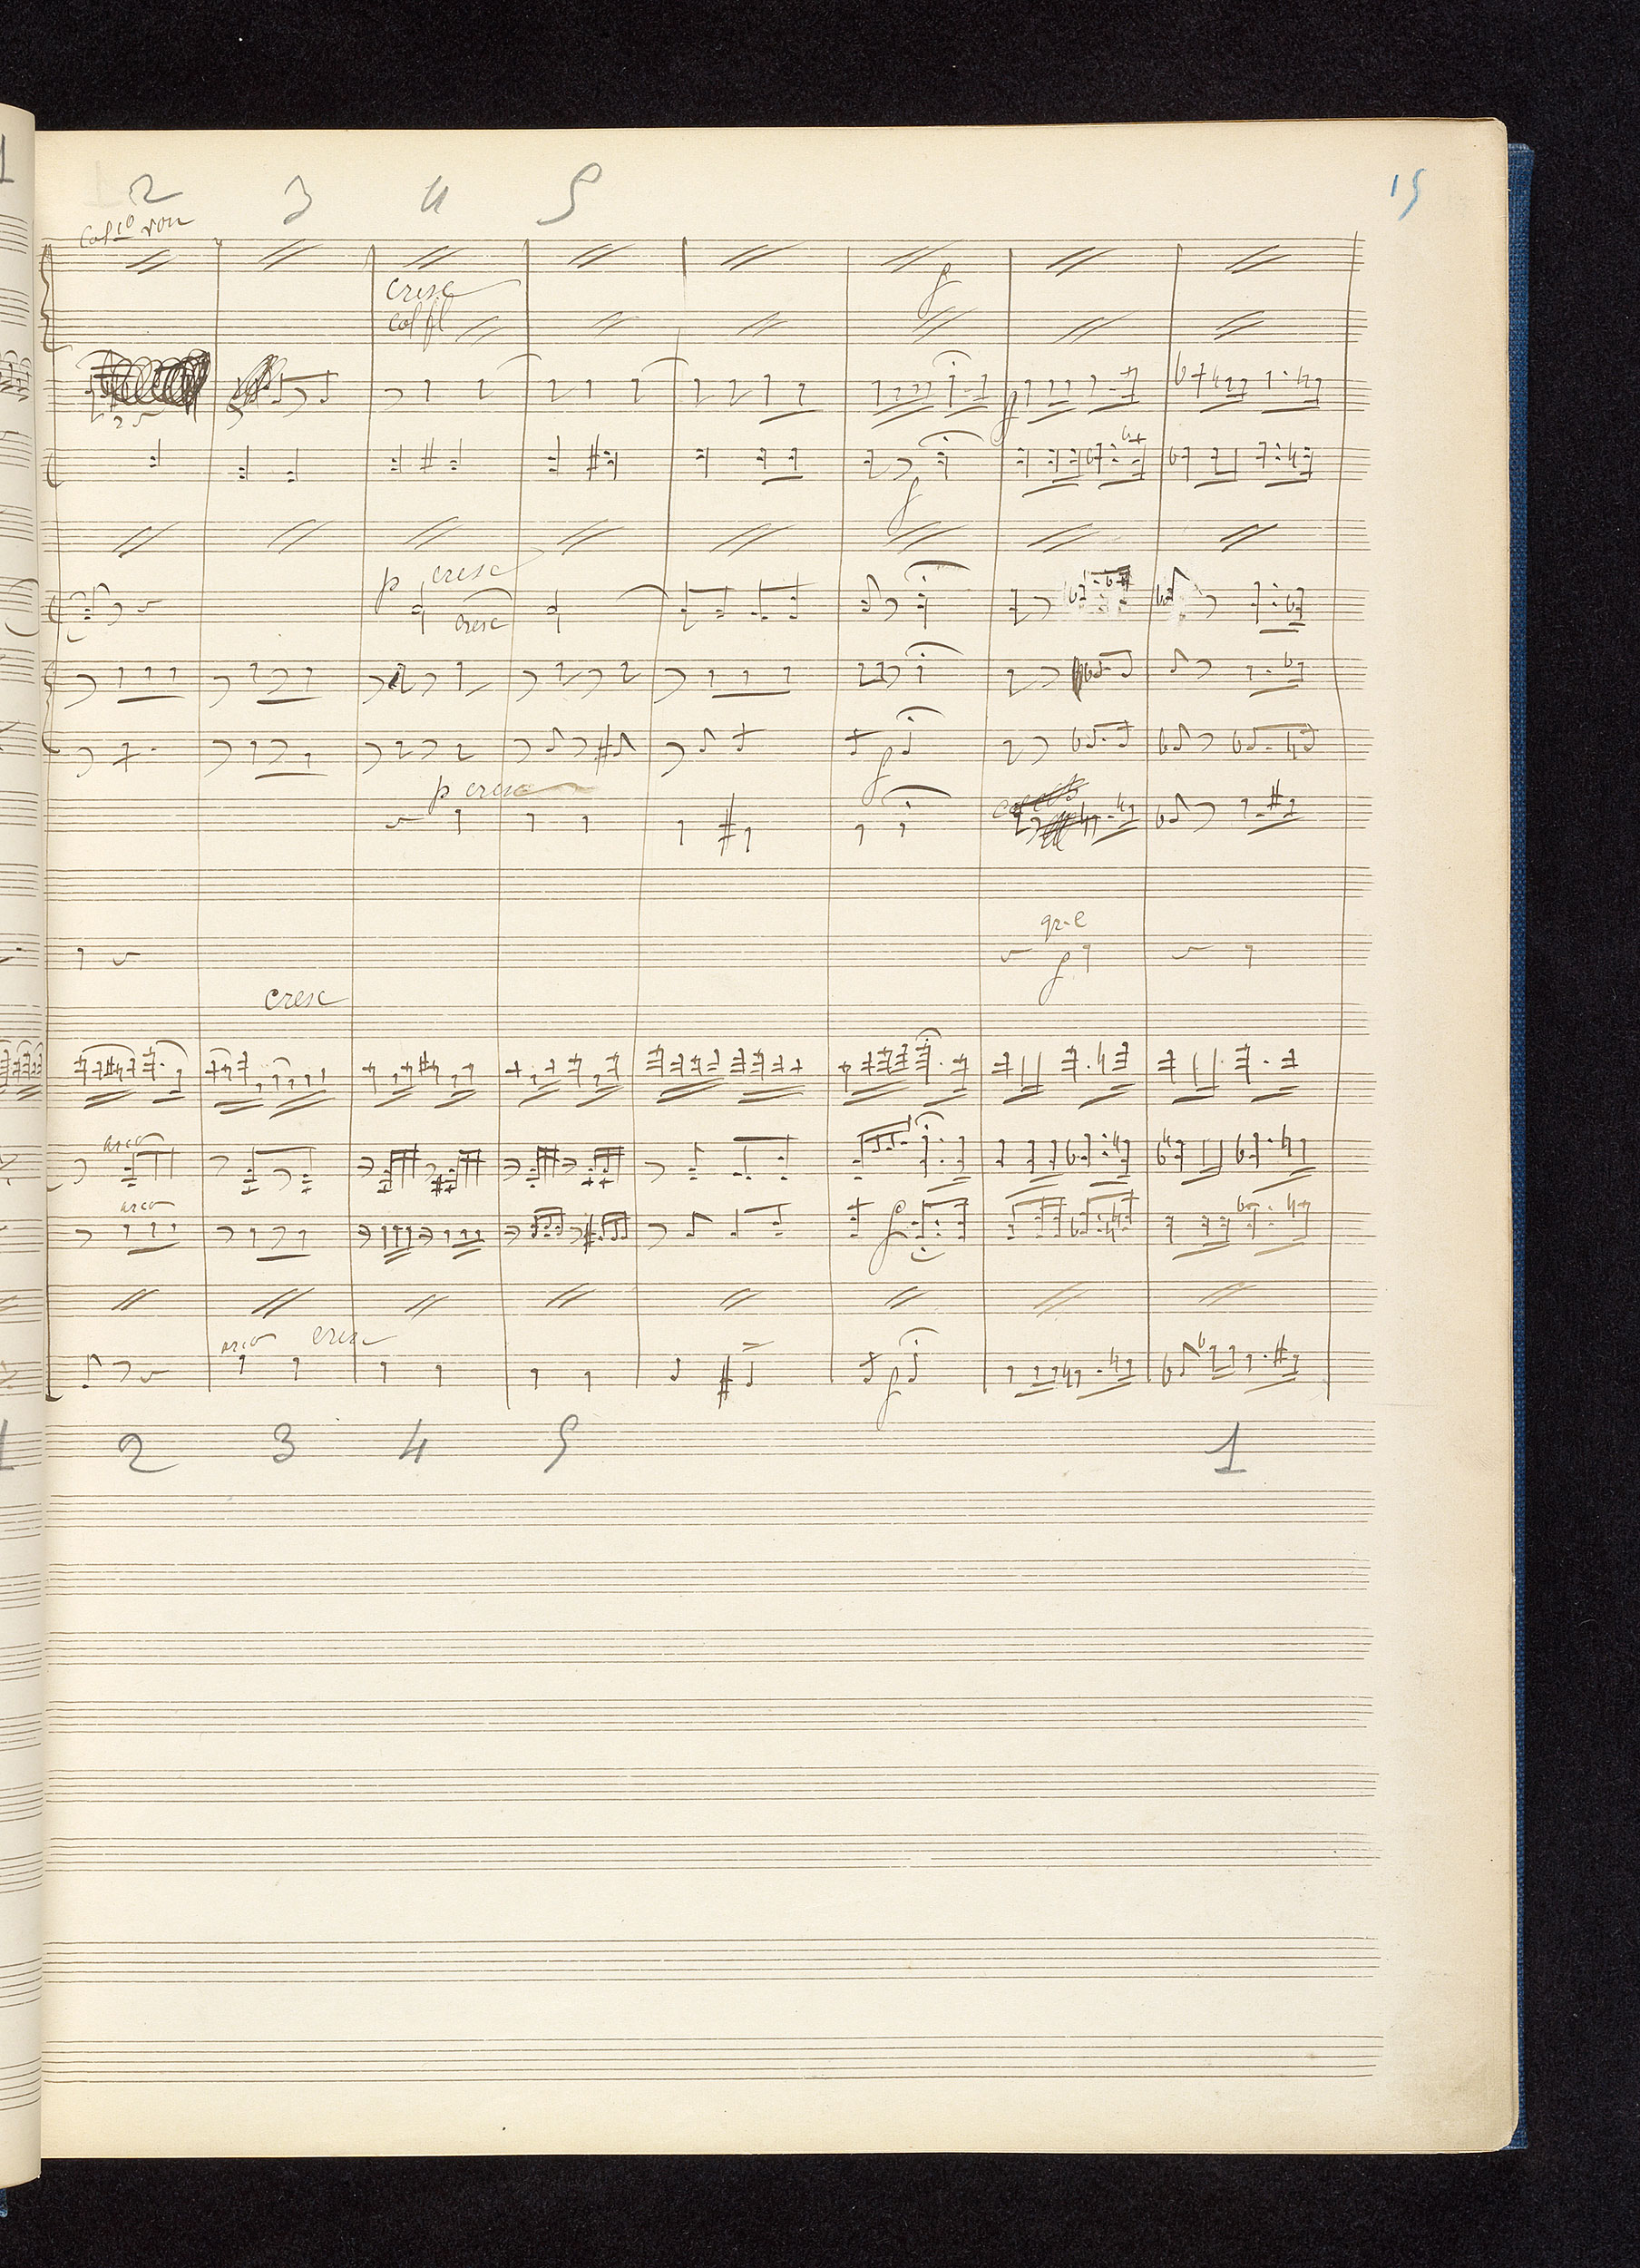 15
2 3 4 5
Col 1o von
cresc
col fl
f
f
f
p cresc
cresc
f
p cresc
gr-c
f
cresc
arco
arco
f
arco cresc
f
2 3 4 5 1